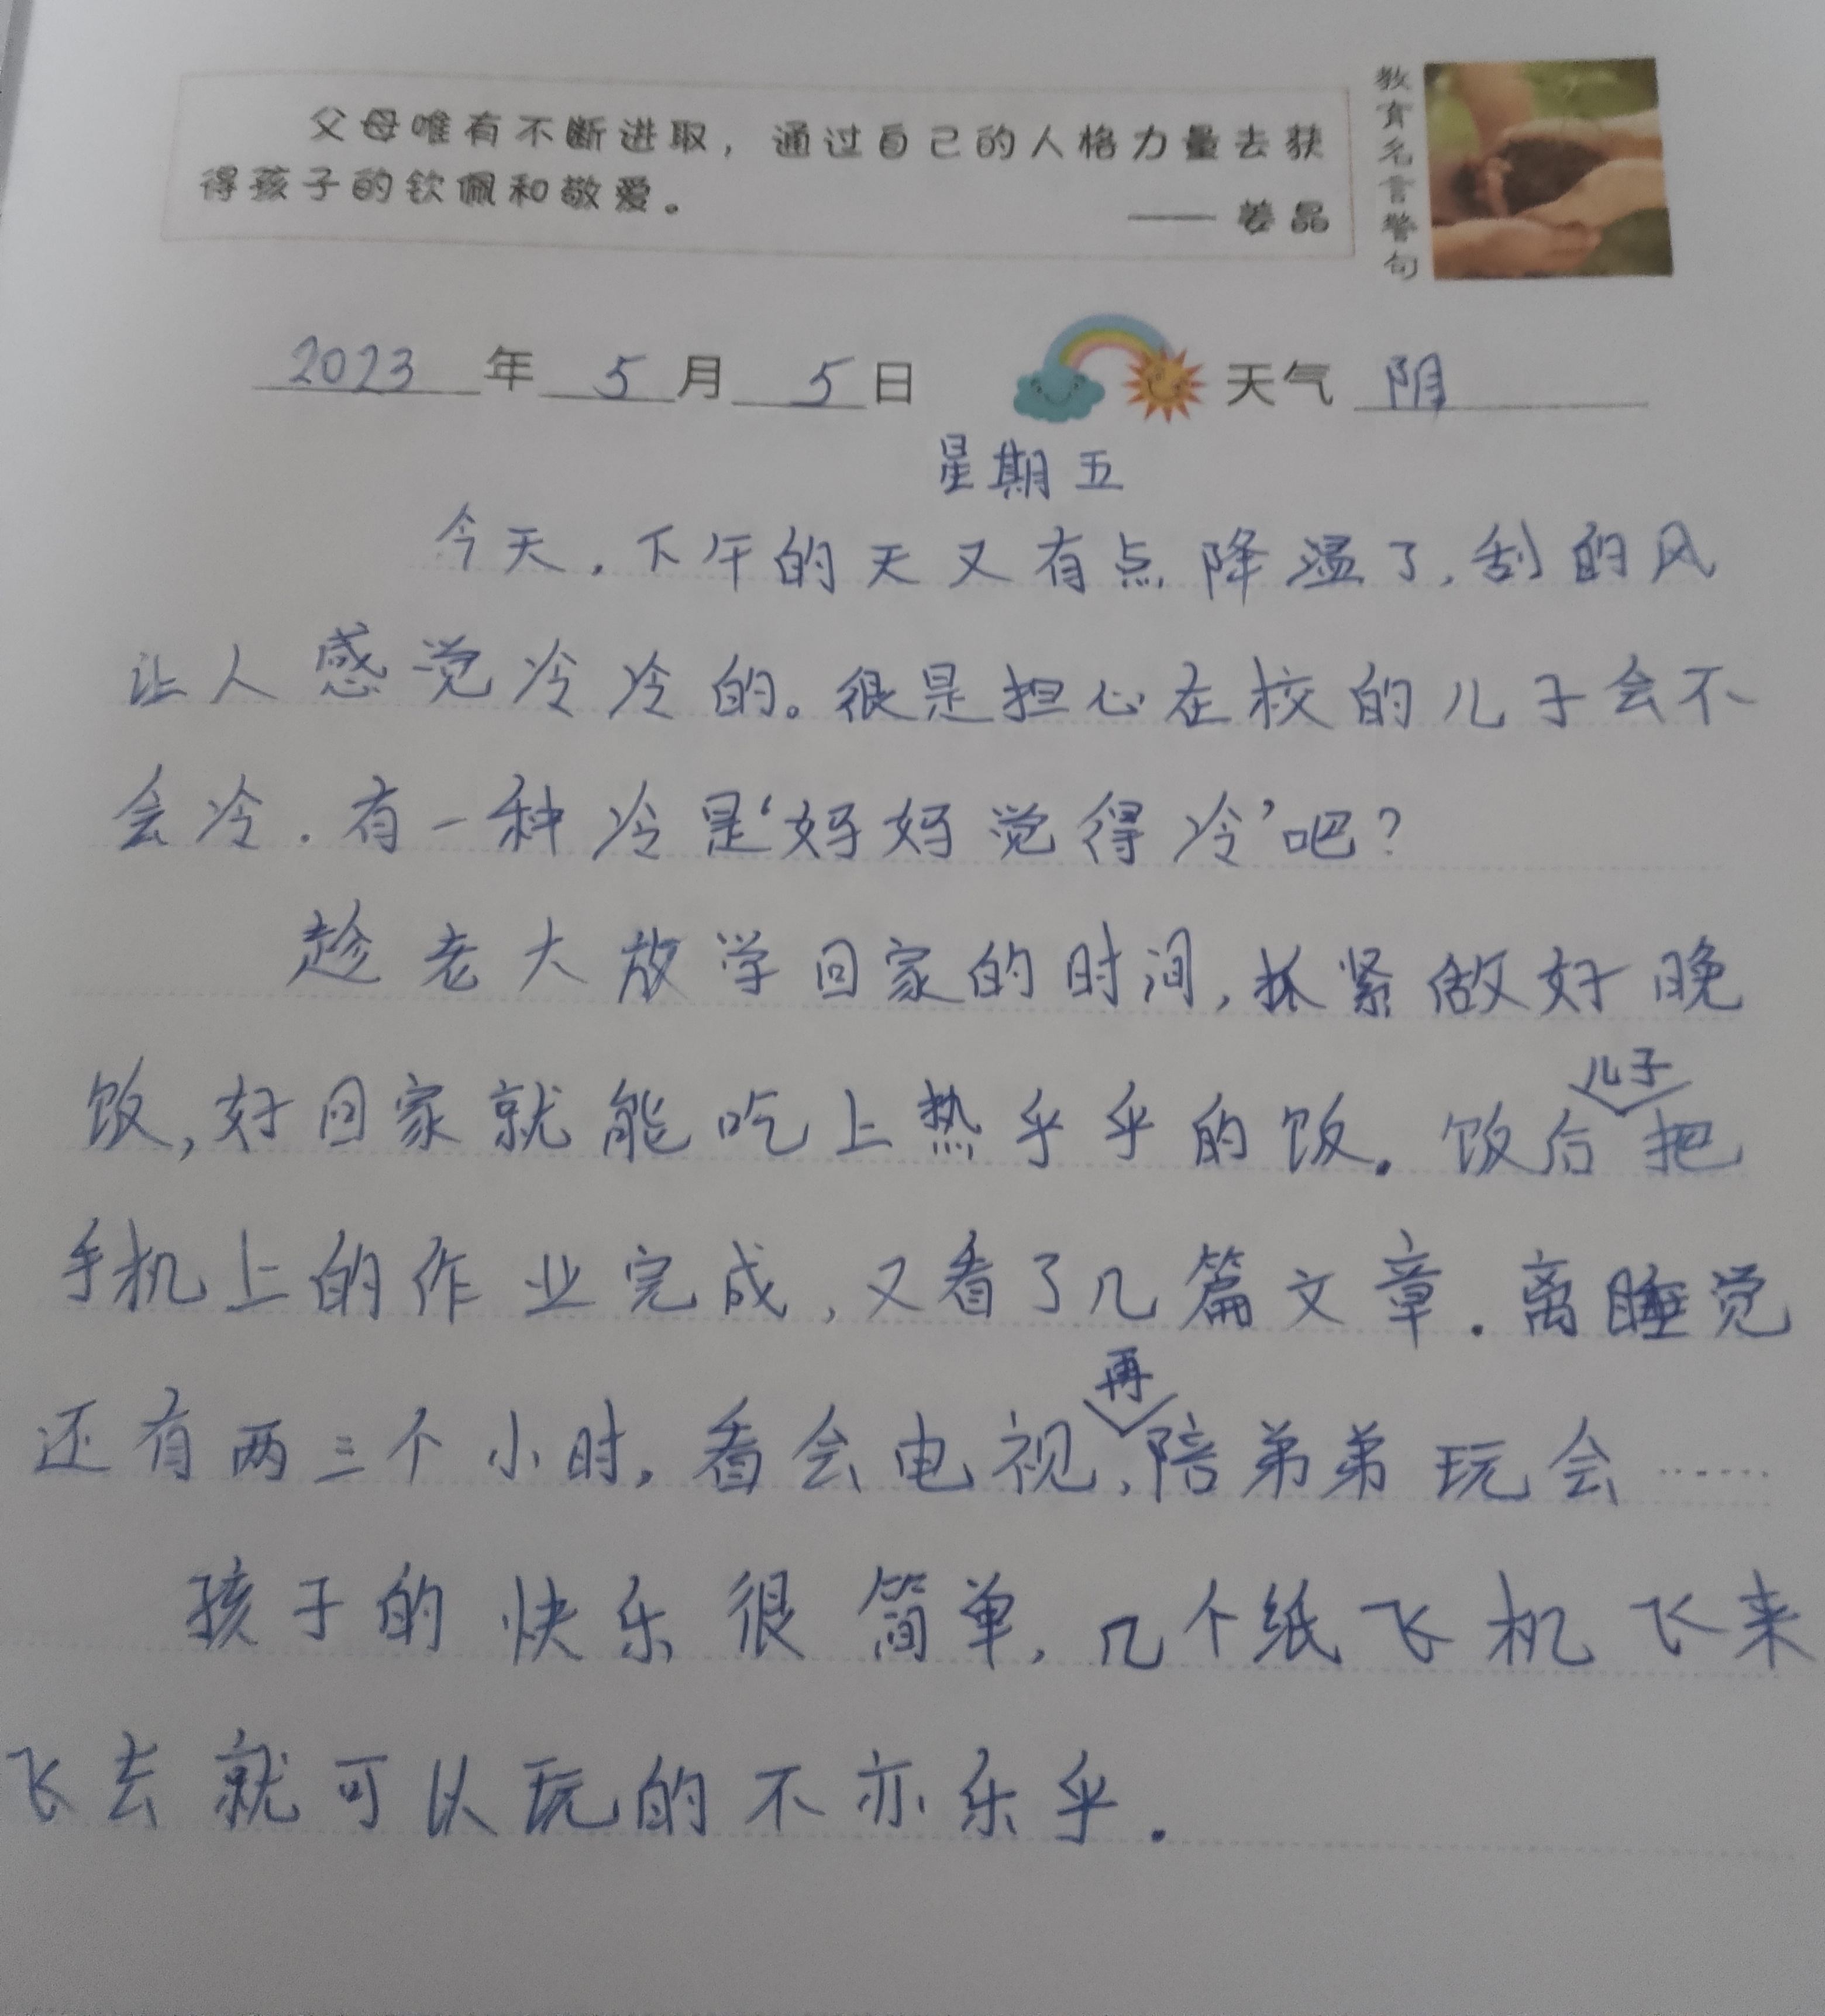 父母唯有不断进取，通过自己的人格力量去获
得孩子的钦佩和敬爱。
—— 姜晶
教育名言警句
2023年5月5日 天气 阴
星期五
今天，下午的天又有点降温了，刮的风
让人感觉冷冷的。很是担心在校的儿子会不
会冷．有一种冷是‘妈妈觉得冷’吧？
趁老大放学回家的时间，抓紧做好晚
饭，好回家就能吃上热乎乎的饭．饭后儿子把
手机上的作业完成，又看了几篇文章．离睡觉
还有两三个小时，看会电视，再陪弟弟玩会……
孩子的快乐很简单，几个纸飞机飞来
飞去就可以玩的不亦乐乎．